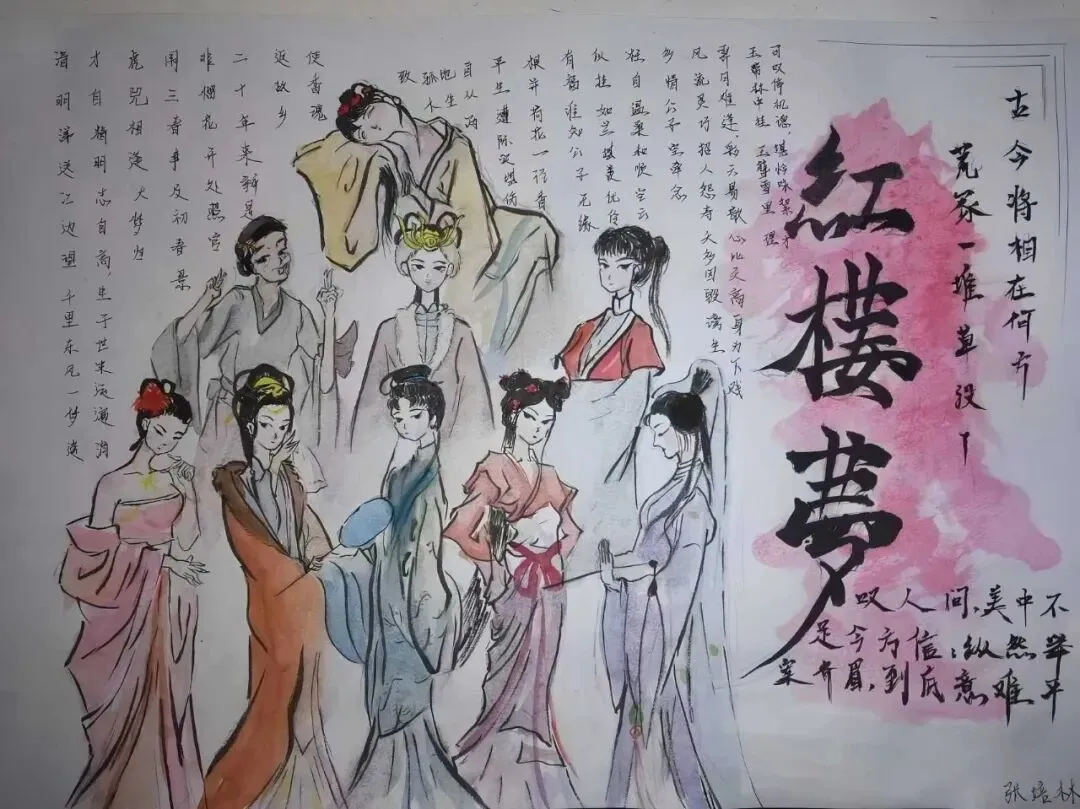 古今将相在何方
荒冢一堆草没了
紅楼夢
叹人间,美中不
足今方信:纵然举
案齐眉,到底意难平
可叹停机德 堪怜咏絮才
玉带林中挂 玉簪雪里埋
霁月难逢,彩云易散 心比天高 身为下贱
风流灵巧招人怨 寿夭多因毁谤生
多情公子空牵念
枉自温柔和顺 空云
似桂如兰 堪羡优伶
有福谁知公子无缘
根并荷花一 香
平生遭际实堪伤
自从两
地生
孤木
致
使香魂
返故乡
二十年来辨是
非榴花开处照宫
闱三春争及初春景
虎兕相逢大梦归
才自精明志自高 生于世末运偏消
清明涕送江边望 千里东风一梦遥
张培林